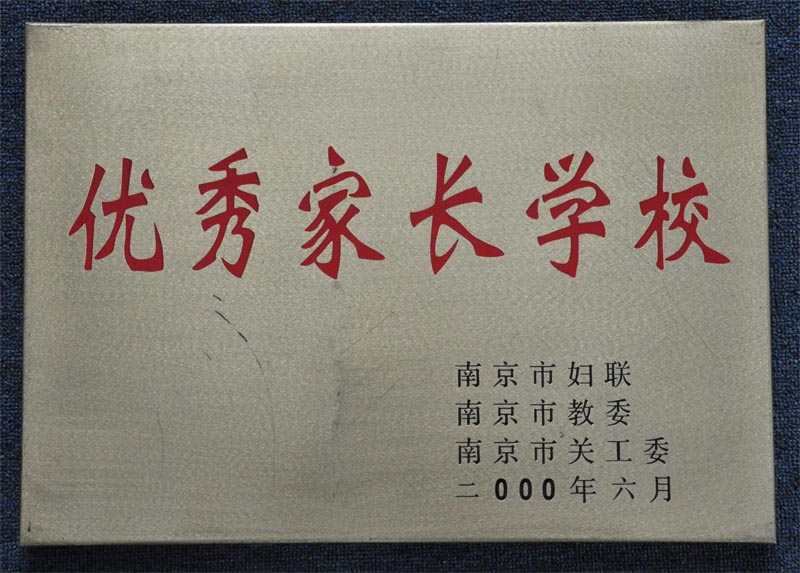 优秀家长学校
南京市妇联
南京市教委
南京市关工委
二000年六月